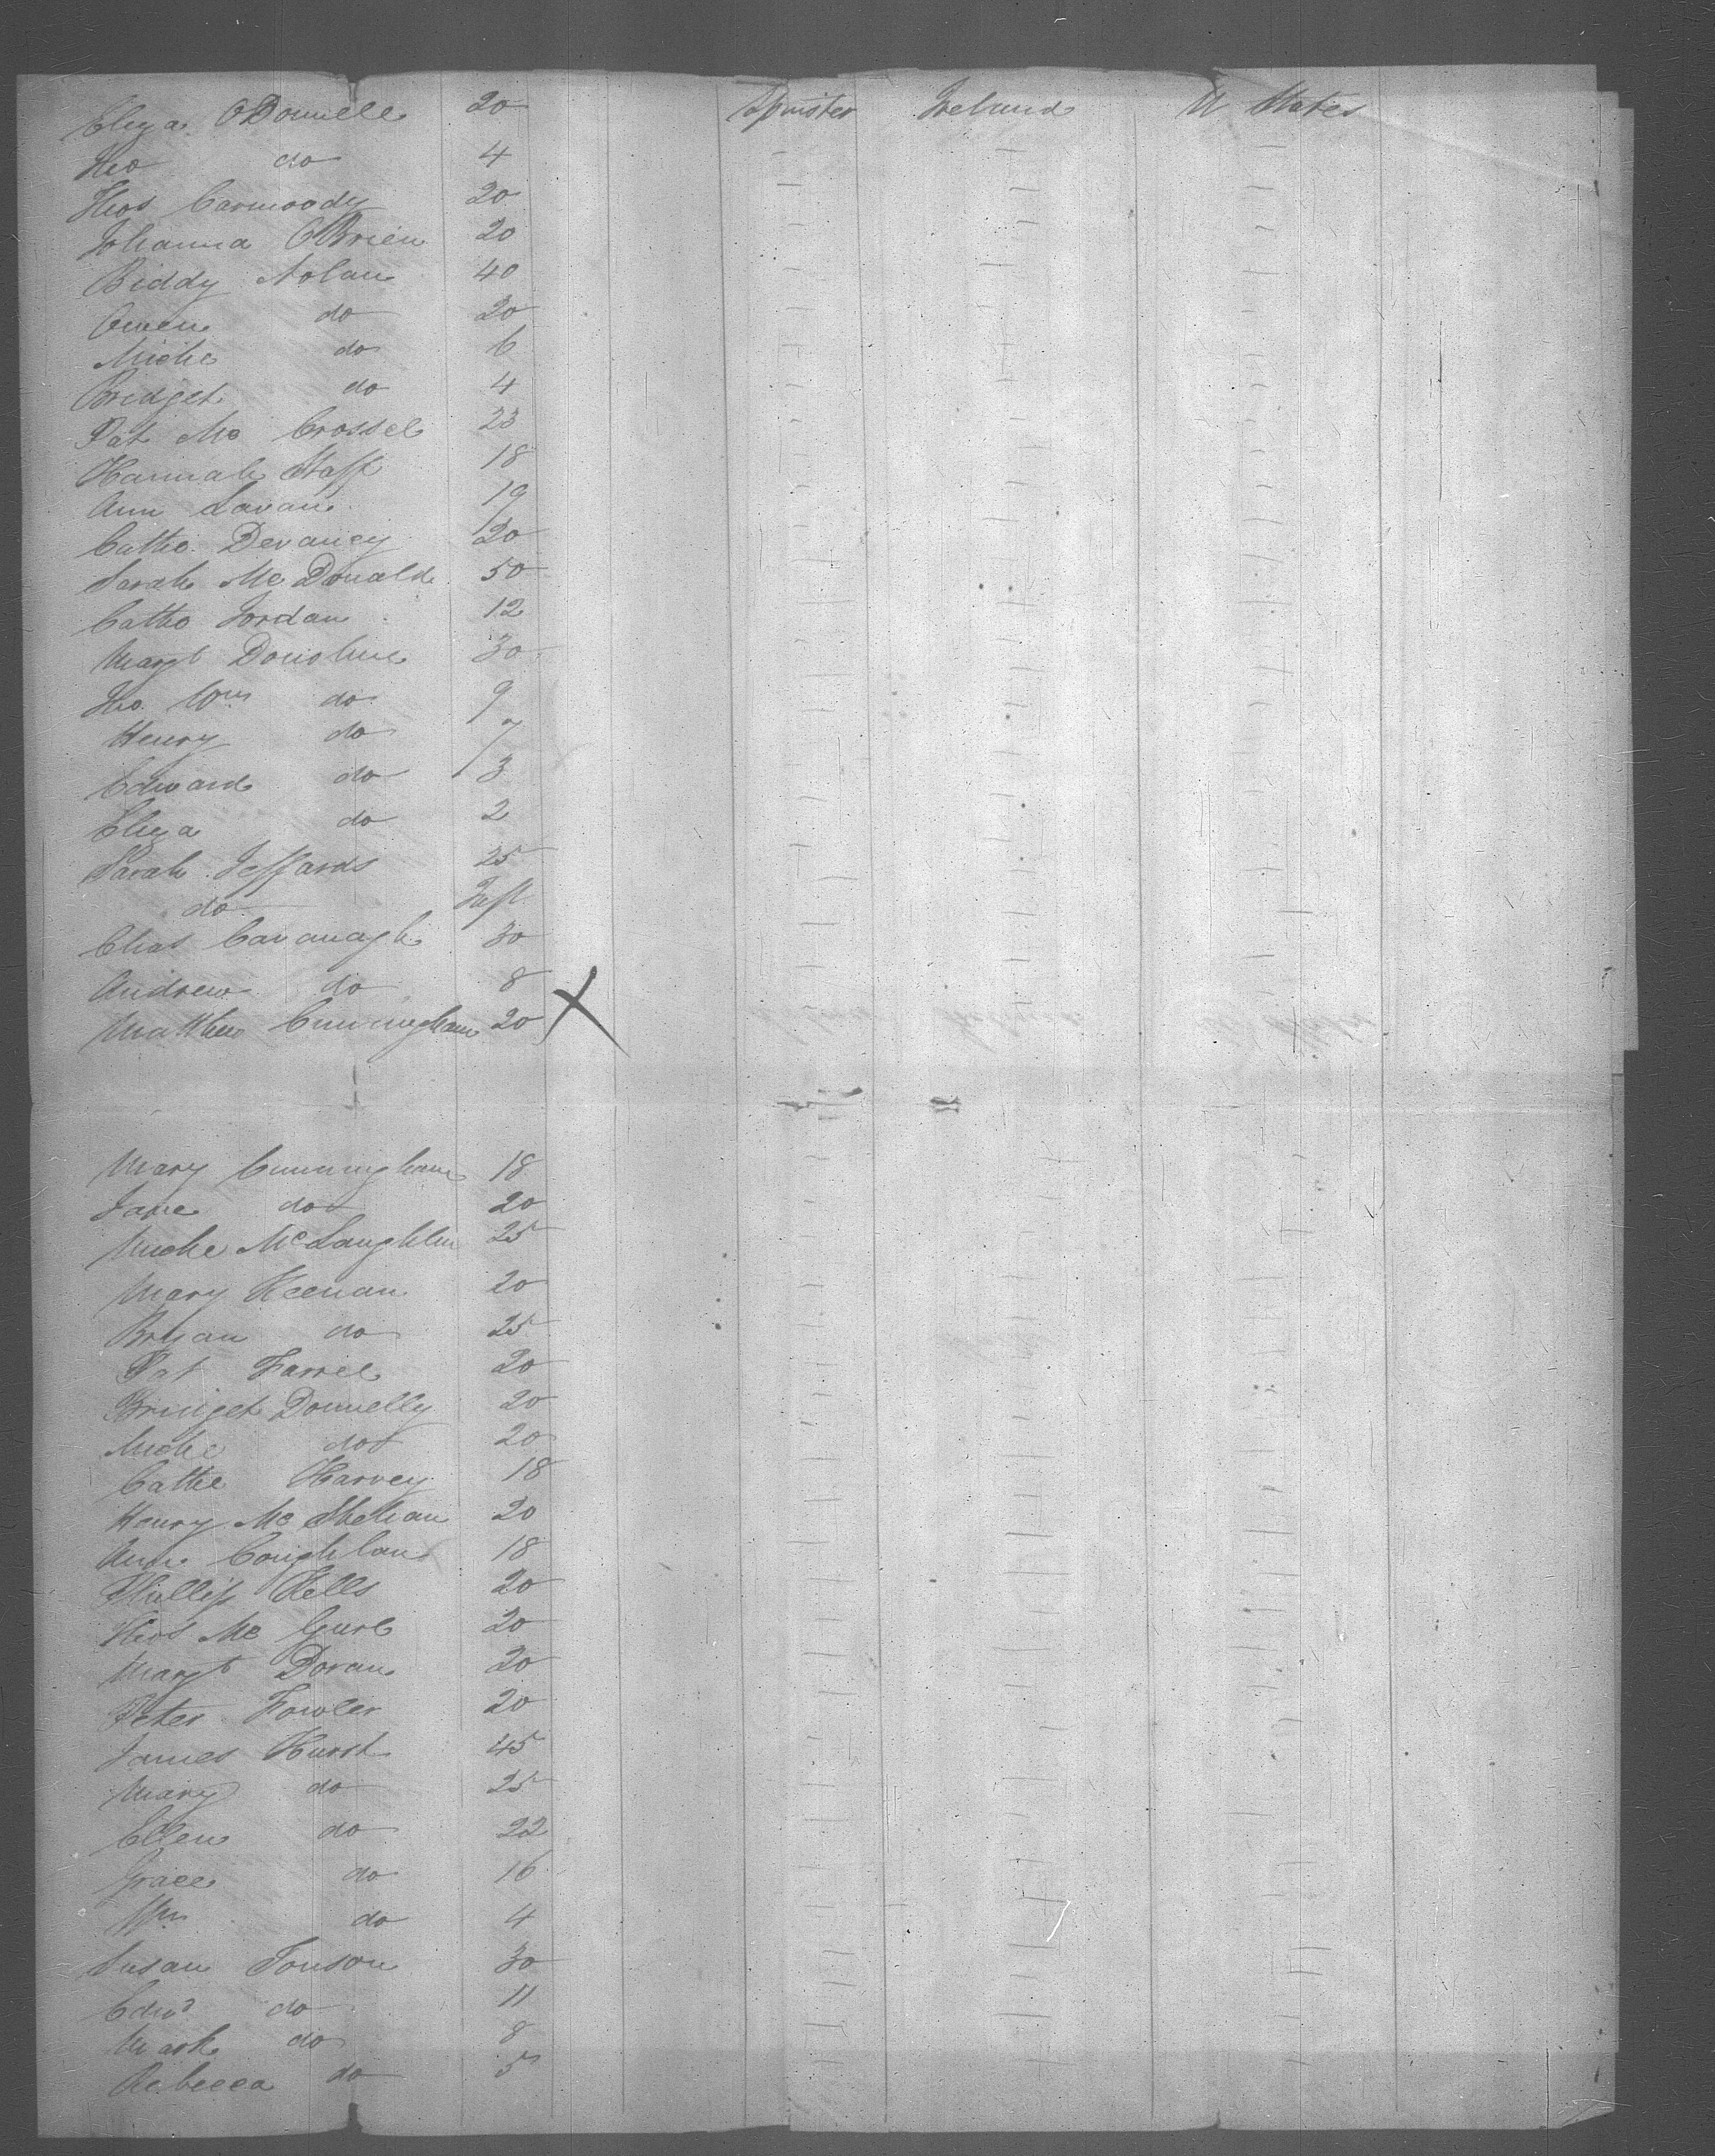 Eliza O'Donnell 20 Spinster Ireland U States
Theo do 4
Thos Carmoody 20
Johanna O'Brien 20
Biddy Nolan 40
Owen do 20
Miche do 6
Bridget do 4
Pat Mc Crossel 23
Hannah Staff 18
Ann Lavan 19
Cathe Devaney 20
Sarah McDonald 50
Cathe Jordan 12
Margt Donohue 30
Wm do 9
Henry do 7
Edward do 3
Eliza do 2
Sarah Jeffards 25
do Inft
Chas Cavanagh 30
Andrew do 8
Matthew Cunningham 20 X
Mary Cunningham 18
Jane do 20
Miche McLaughlin 25
Mary Keenan 20
Bryan do 25
Pat Farrel 20
Bridget Donnelly 20
Miche do 20
Cathe Harvey 18
Henry Mc Shehan 20
Ann Coughlan 18
Phillip Kells 20
Thos Mc Gurl 20
Margt Doran 20
Peter Fowler 20
James Hurst 45
Mary do 25
Ellen do 22
Grace do 16
Wm do 4
Susan Tonson 30
Edwd do 11
Mark do 8
Rebecca do 5